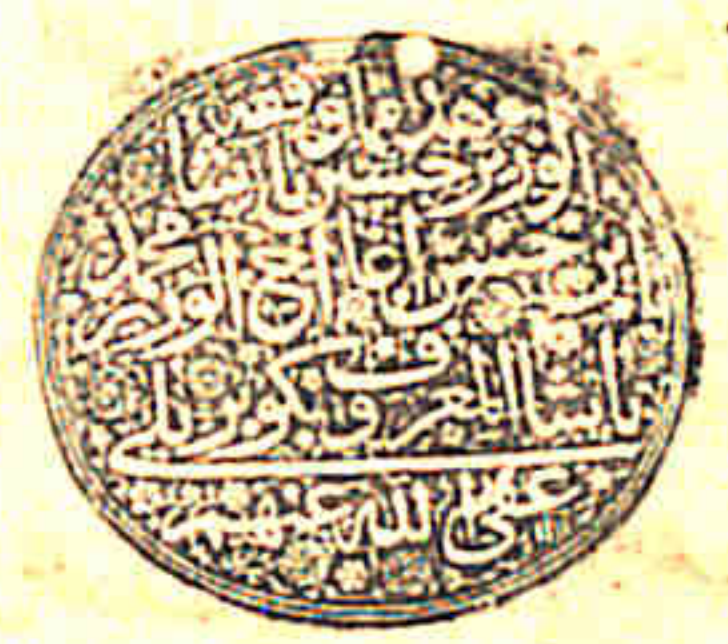 هذا ما وقفه
الوزير حسين پاشا
ابن حسن اغا اخي الوزير محمد
پاشا المعروف بكوپريلى
عفى الله عنهم